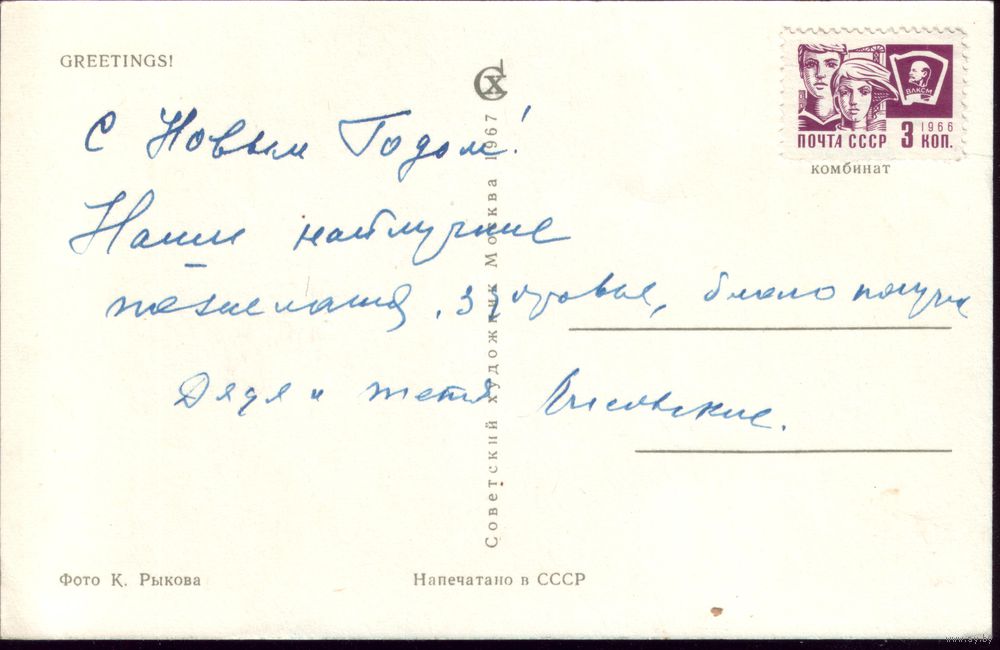 GREETINGS!
С Новым Годом!
Наши наилучшие
пожелания, здоровья, благополучия
Дядя и тётя
Советский художник Москва 1967
СХ
ВЛКСМ
1966
ПОЧТА СССР 3 КОП.
комбинат
Фото К. Рыкова
Напечатано в СССР
www.ay.by